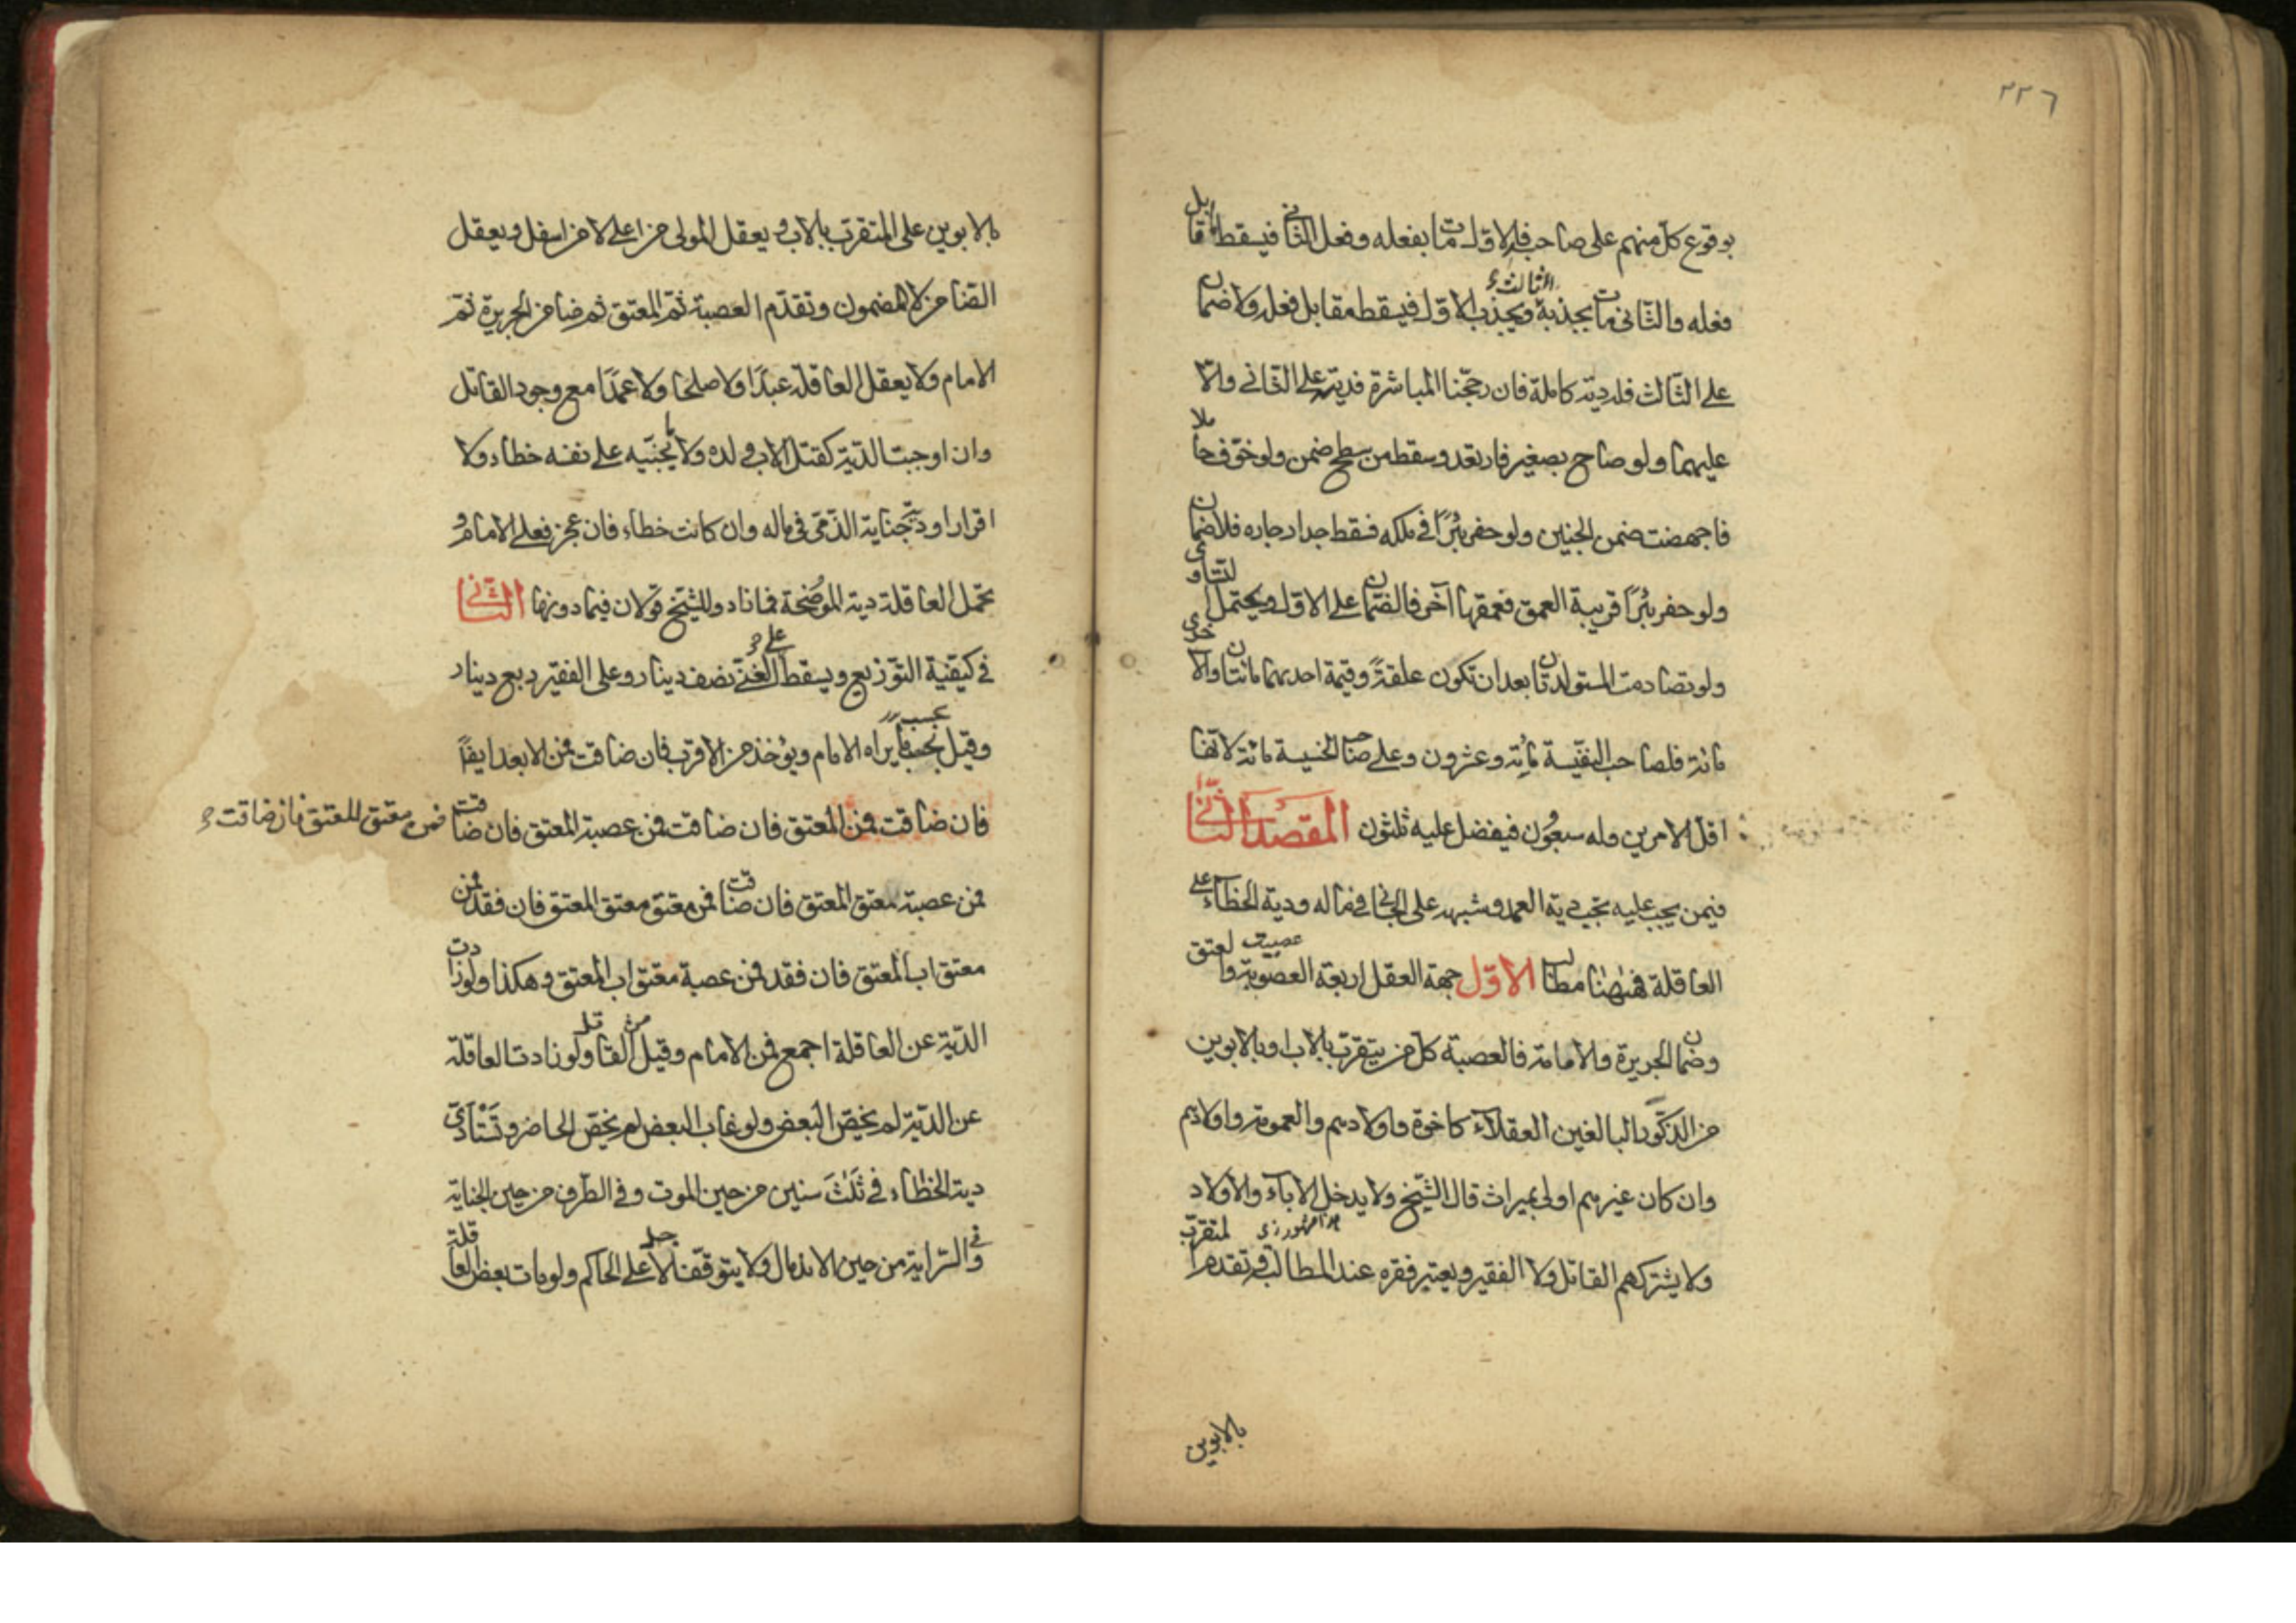 ٢٢٦
بوقوع كلّ منهم على صاحبه فالاوّل مات بفعله وفعل الثانى فيسقط ما قابل
فعله والثّانى مات بجذبه الثالث وبجذب الاوّل فيسقط مقابل فعله ولا ضمان
على الثّالث فله دية كاملة فان رجّحنا المباشرة فديته على الثّانى والّا
عليهما ولو صاح بصغير فارتعد وسقط من سطح ضمن ولو خوّف حاملا
فاجهضت ضمن الجنين ولو حفر بئرًا فى ملكه فسقط جدار جاره فلا ضمان
ولو حفر بئرًا قريبة العمق فعمقها آخر فالضّمان على الاوّل ويحتمل التساوى
ولو تصادمت المستولدتان بعد ان تكون علقةً وقيمة احديهما مائتان والاخرى
مائة فلصاحب النفيسة مائة وعشرون وعلى صاحب الخسيسة مائة لانها
اقلّ الامرين وله سبعون فيفضل عليه ثلثون المقصد الثّانى
فيمن يجب عليه تجب دية العمد وشبهه على الجانى فى ماله ودية الخطاء على
العاقلة فههنا مطالب الاوّل جهة العقل اربعة العصوبة والعتق
عصبيت
وضمان الجريرة والامامة فالعصبة كلّ من يتقرّب بالاب او بالابوين
من الذّكور البالغين العقلآء كاخوة واولادهم والعمومة واولادهم
وان كان غيرهم اولى بميراث قال الشّيخ ولا يدخل الابآء والاولاد
ولا يشركهم القاتل ولا الفقير ويعتبر فقره عند المطالبة وتقدم المتقرّب
بالابوين
بالابوين على المتقرّب بالاب ويعقل المولى من اعلى لا من اسفل ويعقل
الضّامن لا المضمون وتقدّم العصبة ثمّ المعتق ثم ضامن الجريرة ثمّ
الامام ولا يعقل العاقلة عبدًا ولا صلحًا ولا عمدًا مع وجود القاتل
وان اوجبت الدّية كقتل الاب ولده ولا ما يجنيه على نفسه خطاء ولا
اقرارا ودية جناية الذّمّى فى ماله وان كانت خطاء فان عجز فعلى الامام و
تحمل العاقلة دية الموضحة فمازاد وللشّيخ قولان فيما دونها الثّانى
فى كيفية التّوزيع ويسقط على الغنىّ نصف دينار وعلى الفقير ربع دينار
وقيل بحسب ما يراه الامام ويؤخذ من الاقرب فان ضاقت فمن الابعد ايضًا
فان ضاقت فمن المعتق فان ضاقت فمن عصبة المعتق فان ضاقت فمن معتق للمعتق فان ضاقت
فمن عصبة معتق المعتق فان ضاقت فمن معتق معتق المعتق فان فقد فمن
معتق اب المعتق فان فقد فمن عصبة معتق اب المعتق وهكذا ولو زادت
الدّية عن العاقلة اجمع فمن الامام وقيل من القاتل ولو زادت العاقلة
عن الدّية لم يختصّ البعض ولو غاب البعض لم يختصّ الحاضر وتستأدى
دية الخطاء فى ثلث سنين من حين الموت وفى الطّرف من حين الجناية
وفى السّراية من حين الاندمال ولا يتوقف الاجل على الحاكم ولو مات بعض العاقلة